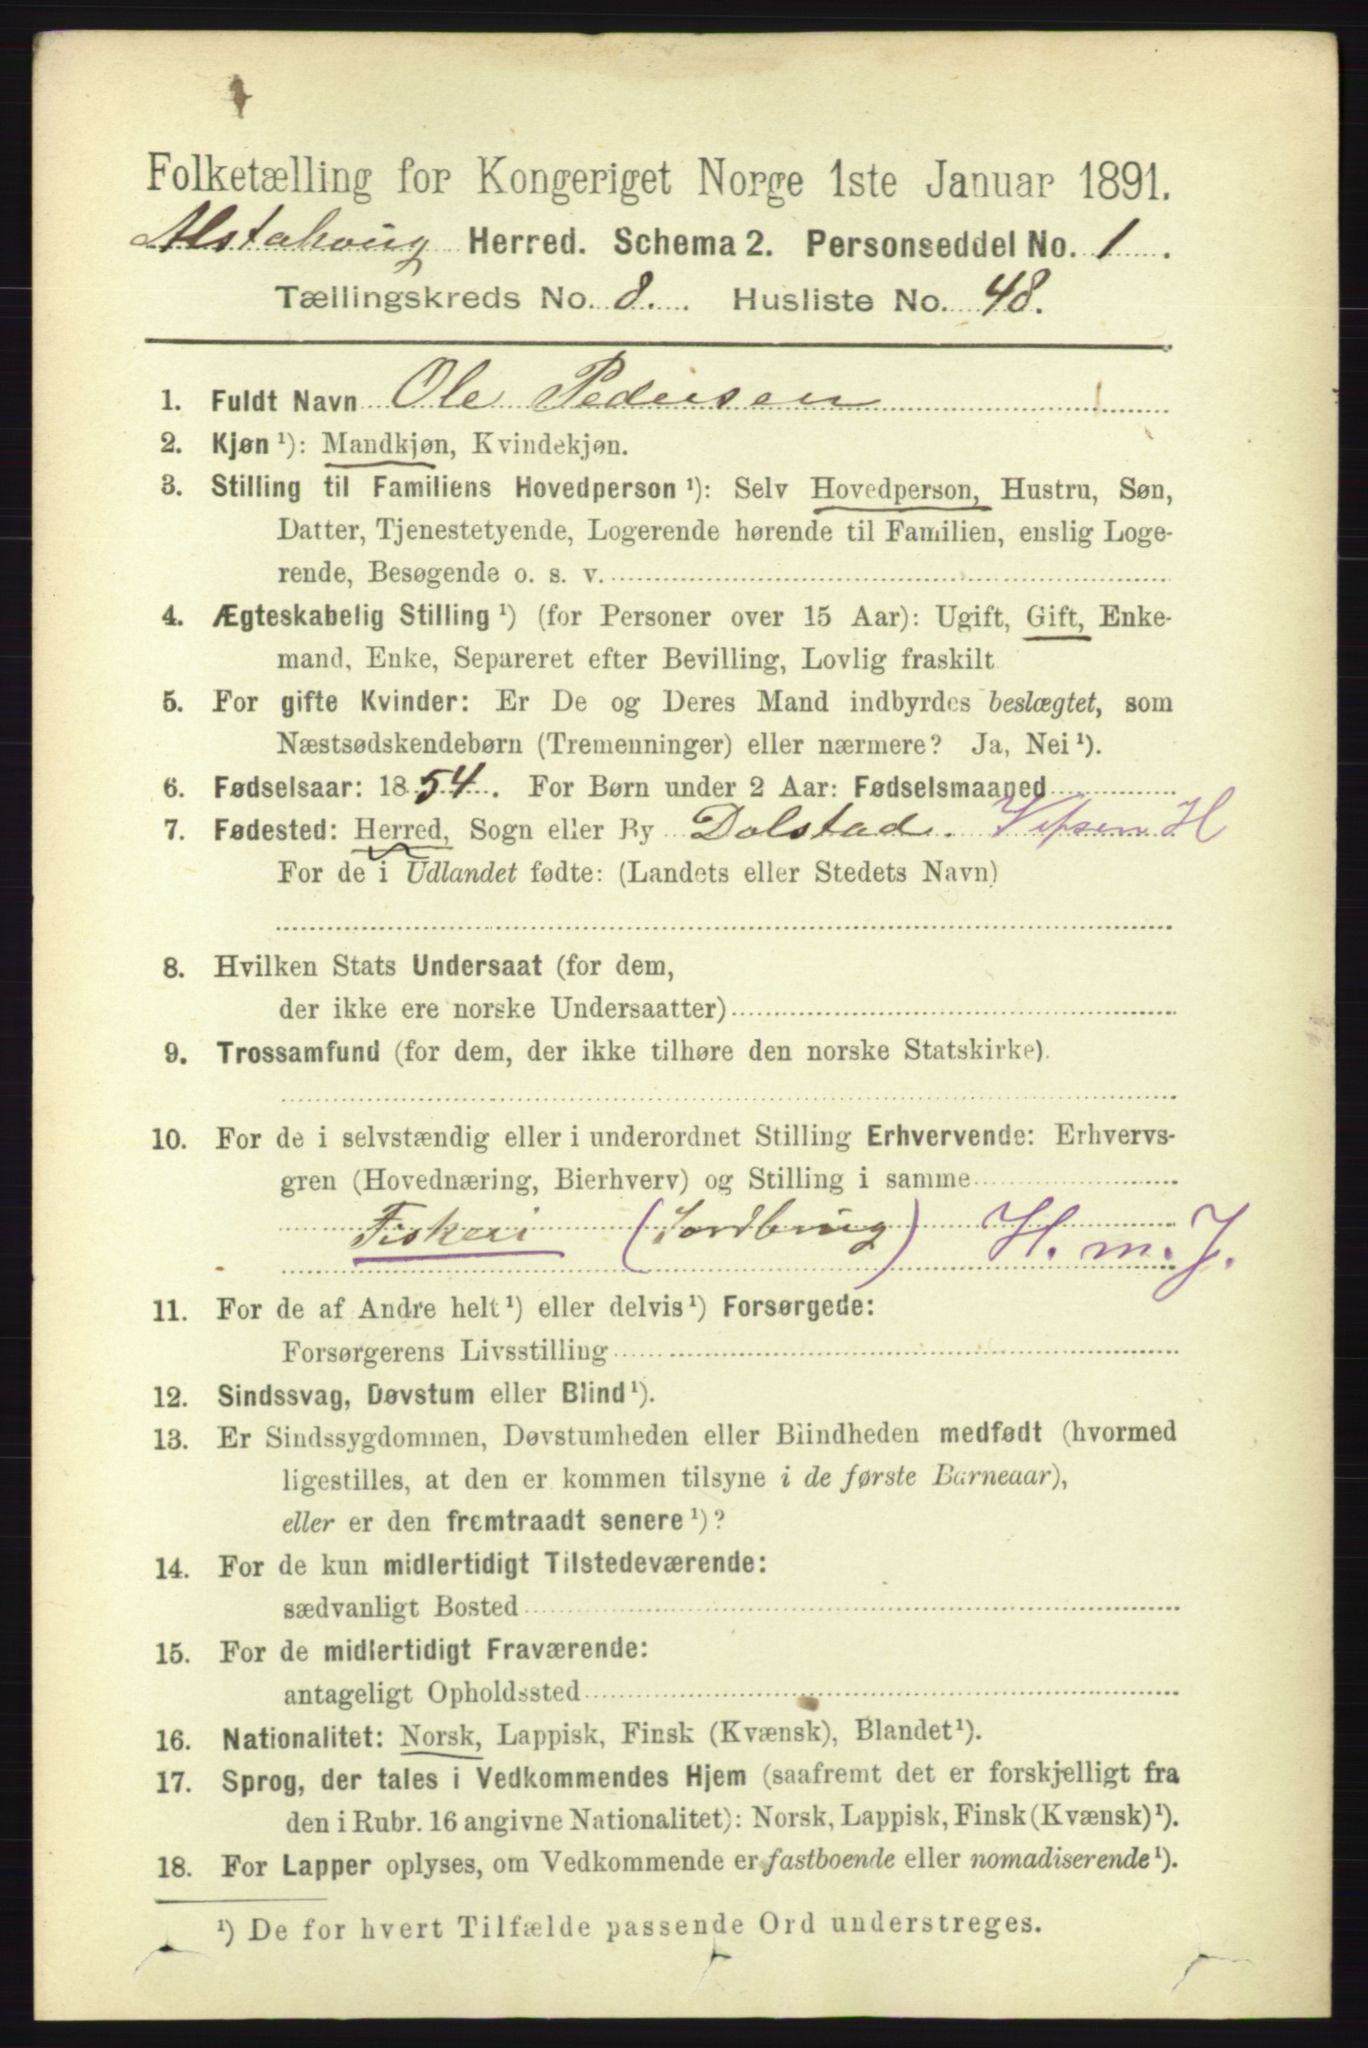 Folketælling for Kongeriget Norge 1ste Januar 1891.
Alstahoug Herred. Schema 2. Personseddel No. 1.
Tællingskreds No. 8. Husliste No. 48.
1. Fuldt Navn Ole Pedersen
2. Kjøn ¹): Mandkjøn, Kvindekjøn.
3. Stilling til Familiens Hovedperson ¹): Selv Hovedperson, Hustru, Søn,
Datter, Tjenestetyende, Logerende hørende til Familien, enslig Loge-
rende, Besøgende o. s. v.
4. Ægteskabelig Stilling ¹) (for Personer over 15 Aar): Ugift, Gift, Enke-
mand, Enke, Separeret efter Bevilling, Lovlig fraskilt
5. For gifte Kvinder: Er De og Deres Mand indbyrdes beslægtet, som
Næstsødskendebørn (Tremenninger) eller nærmere? Ja, Nei ¹).
6. Fødselsaar: 1854. For Børn under 2 Aar: Fødselsmaaned
7. Fødested: Herred, Sogn eller By Dolstad. Vefsen H
For de i Udlandet fødte: (Landets eller Stedets Navn)
8. Hvilken Stats Undersaat (for dem,
der ikke ere norske Undersaatter)
9. Trossamfund (for dem, der ikke tilhøre den norske Statskirke).
10. For de i selvstændig eller i underordnet Stilling Erhvervende: Erhvervs-
gren (Hovednæring, Bierhverv) og Stilling i samme
Fiskeri (Jordbrug) H. m. J.
11. For de af Andre helt ¹) eller delvis ¹) Forsørgede:
Forsørgerens Livsstilling
12. Sindssvag, Døvstum eller Blind ¹).
13. Er Sindssygdommen, Døvstumheden eller Blindheden medfødt (hvormed
ligestilles, at den er kommen tilsyne i de første Barneaar),
eller er den fremtraadt senere ¹)?
14. For de kun midlertidigt Tilstedeværende:
sædvanligt Bosted
15. For de midlertidigt Fraværende:
antageligt Opholdssted
16. Nationalitet: Norsk, Lappisk, Finsk (Kvænsk), Blandet ¹).
17. Sprog, der tales i Vedkommendes Hjem (saafremt det er forskjelligt fra
den i Rubr. 16 angivne Nationalitet): Norsk, Lappisk, Finsk (Kvænsk) ¹).
18. For Lapper oplyses, om Vedkommende er fastboende eller nomadiserende ¹).
¹) De for hvert Tilfælde passende Ord understreges.